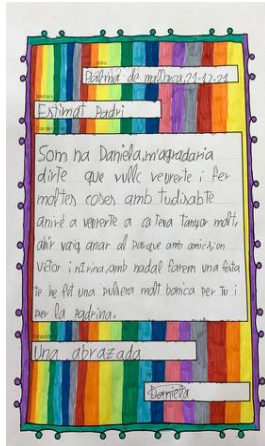 Palma de mallorca, 21-12-21
Estimat Padri
Som na Daniela, m'agradaria
dirte que vulc veurerte i fer
moltes coses amb tu disabte
aniré a veurerte a ca teva tanyor molt,
ahir vaig anar al parque amb amics, on
Victor i nirina, amb nadal farem una festa
te he fet una pulsera molt bonica per tu i
per la padrina.
Una abrazada
Daniela